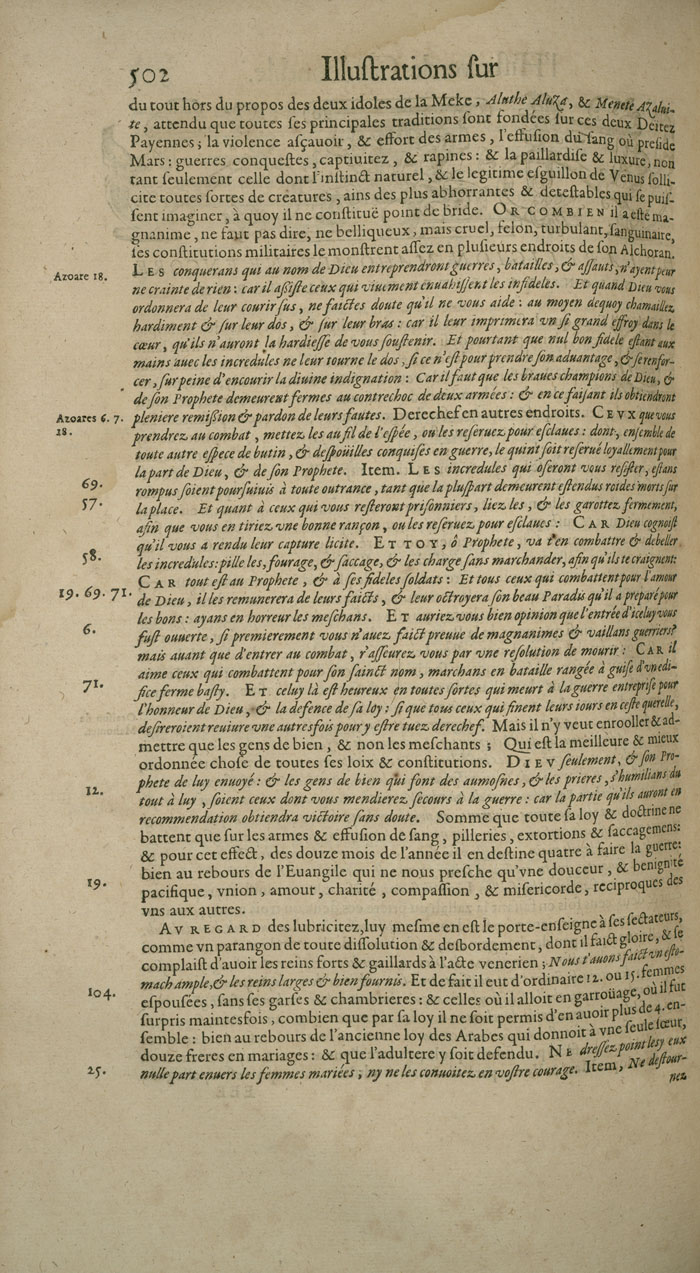 502 Illuſtrations ſur
du tout hors du propos des deux idoles de la Meke, Aluthe Aluza, & Menete Azalui-
te, attendu que toutes ſes principales traditions ſont fondées ſur ces deux Deitez
Payennes; la violence aſçauoir, & effort des armes, l'effuſion du ſang où preſide
Mars: guerres conqueſtes, captiuitez, & rapines: & la paillardiſe & luxure, non
tant ſeulement celle dont l'inſtinct naturel, & le legitime eſguillon de Venus ſolli-
cite toutes ſortes de creatures, ains des plus abhorrantes & deteſtables qui ſe puiſ-
ſent imaginer, à quoy il ne conſtituë point de bride. OR COMBIEN il a eſté ma-
gnanime, ne faut pas dire, ne belliqueux, mais cruel, felon, turbulant, ſanguinaire,
ſes conſtitutions militaires le monſtrent aſſez en pluſieurs endroits de ſon Alchoran.
Azoare 18. LES conquerans qui au nom de Dieu entreprendront guerres, batailles, & aſſauts, n'ayent peur
ne crainte de rien: car il aßiſte ceux qui viuement enuahiſſent les infideles. Et quand Dieu vous
ordonnera de leur courir ſus, ne faictes doute qu'il ne vous aide: au moyen dequoy chamaillez
hardiment & ſur leur dos, & ſur leur bras: car il leur imprimera vn ſi grand effroy dans le
cœur, qu'ils n'auront la hardieſſe de vous ſouſtenir. Et pourtant que nul bon fidele eſtant aux
mains auec les incredules ne leur tourne le dos, ſi ce n'eſt pour prendre ſon aduantage, & ſe renfor-
cer, ſur peine d'encourir la diuine indignation: Car il faut que les braues champions de Dieu, &
de ſon Prophete demeurent fermes au contrechoc de deux armées: & en ce faiſant ils obtiendront
Azoares 6. 7. pleniere remißion & pardon de leurs fautes. Derechef en autres endroits. CEVX que vous
28. prendrez au combat, mettez les au fil de l'eſpée, ou les reſeruez pour eſclaues: dont, enſemble de
toute autre eſpece de butin, & deſpoüilles conquiſes en guerre, le quint ſoit reſerué loyallement pour
la part de Dieu, & de ſon Prophete. Item. LES incredules qui oſeront vous reſiſter, eſtans
69. rompus ſoient pourſuiuis à toute outrance, tant que la pluſpart demeurent eſtendus roides morts ſur
57. la place. Et quant à ceux qui vous reſteront priſonniers, liez les, & les garottez fermement,
afin que vous en tiriez vne bonne rançon, ou les reſeruez pour eſclaues: CAR Dieu cognoiſt
qu'il vous a rendu leur capture licite. ET TOY, ô Prophete, va t'en combattre & debeller
58. les incredules: pille les, fourage, & ſaccage, & les charge ſans marchander, afin qu'ils te craignent:
CAR tout eſt au Prophete, & à ſes fideles ſoldats: Et tous ceux qui combattent pour l'amour
19. 69. 71. de Dieu, il les remunerera de leurs faicts, & leur octroyera ſon beau Paradis qu'il a preparé pour
les bons: ayans en horreur les meſchans. ET auriez vous bien opinion que l'entrée d'iceluy vous
6. fuſt ouuerte, ſi premierement vous n'auez faict preuue de magnanimes & vaillans guerriers?
mais auant que d'entrer au combat, r'aſſeurez vous par vne reſolution de mourir: CAR il
aime ceux qui combattent pour ſon ſainct nom, marchans en bataille rangée à guiſe d'vn edi-
71. fice ferme baſty. ET celuy là eſt heureux en toutes ſortes qui meurt à la guerre entrepriſe pour
l'honneur de Dieu, & la defence de ſa loy: ſi que tous ceux qui finent leurs iours en ceſte querelle,
deſireroient reuiure vne autresfois pour y eſtre tuez derechef. Mais il n'y veut enrooller & ad-
mettre que les gens de bien, & non les meſchants; Qui eſt la meilleure & mieux
ordonnée choſe de toutes ſes loix & conſtitutions. DIEV ſeulement, & ſon Pro-
phete de luy enuoyé: & les gens de bien qui font des aumoſnes, & les prieres, s'humilians du
12. tout à luy, ſoient ceux dont vous mendierez ſecours à la guerre: car la partie qu'ils auront en
recommendation obtiendra victoire ſans doute. Somme que toute ſa loy & doctrine ne
battent que ſur les armes & effuſion de ſang, pilleries, extortions & ſaccagemens:
& pour cet effect, des douze mois de l'année il en deſtine quatre à faire la guerre:
bien au rebours de l'Euangile qui ne nous preſche qu'vne douceur, & benignité
19. pacifique, vnion, amour, charité, compaſſion, & miſericorde, reciproques des
vns aux autres.
AV REGARD des lubricitez, luy meſme en eſt le porte-enſeigne à ſes ſectateurs,
comme vn parangon de toute diſſolution & deſbordement, dont il faict gloire, & ſe
complaiſt d'auoir les reins forts & gaillards à l'acte venerien; Nous t'auons faict vn eſto-
mach ample, & les reins larges & bien fournis. Et de fait il eut d'ordinaire 12. ou 15. femmes
104. eſpouſées, ſans ſes garſes & chambrieres: & celles où il alloit en garrouage, où il fut
ſurpris mainteſfois, combien que par ſa loy il ne ſoit permis d'en auoir plus de 4. en-
ſemble: bien au rebours de l'ancienne loy des Arabes qui donnoit à vne ſeule ſœur,
douze freres en mariages: & que l'adultere y ſoit defendu. NE dreſſez point les yeux
25. nulle part enuers les femmes mariées, ny ne les conuoitez en voſtre courage. Item, Ne deſtour-
nez